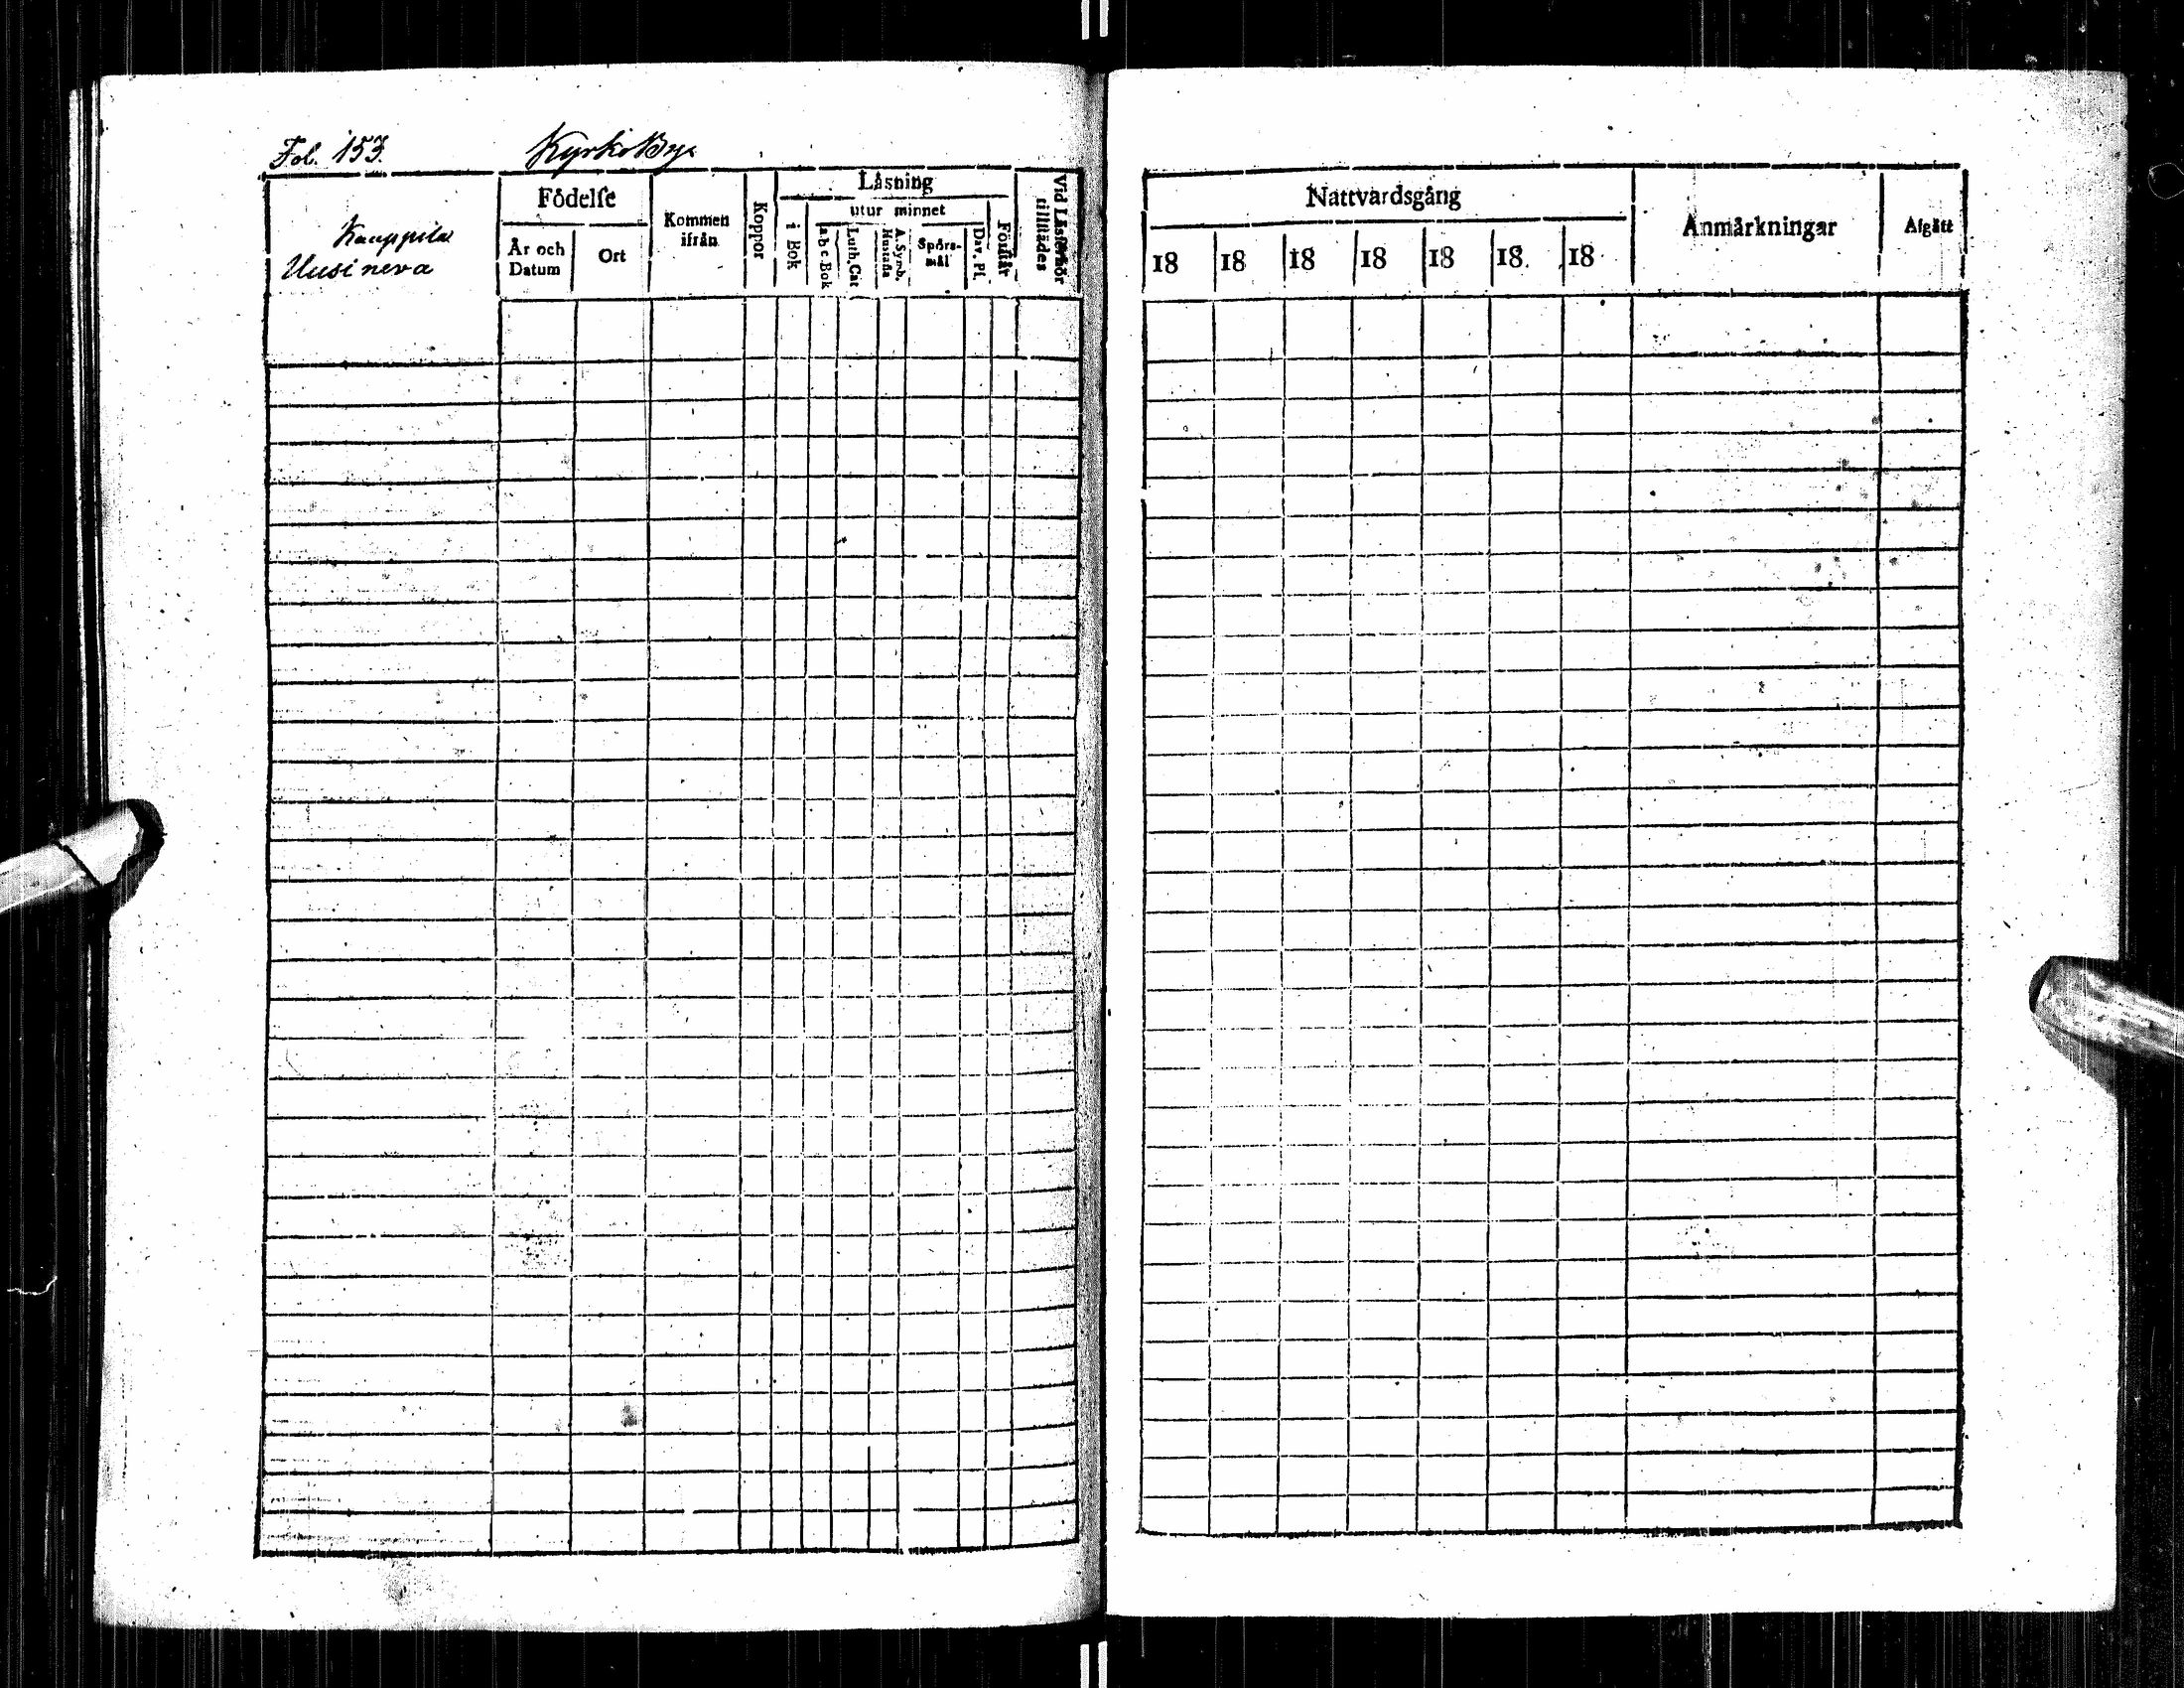 Fol. 153. Kyrko By.
Kauppila
Uusineva
Födelse
År och Datum
Ort
Kommen ifrån
Koppor
Läsning
i Bok
utur minnet
a.b.c. Bok
Luth. Cat
A. Symb. Hustafla
Spörs-mål
Dav. Ps.
Förstår
Vid Läsförhör tillstädes
Nattvardsgång
18 18 18 18 18 18. 18
Anmärkningar
Afgått